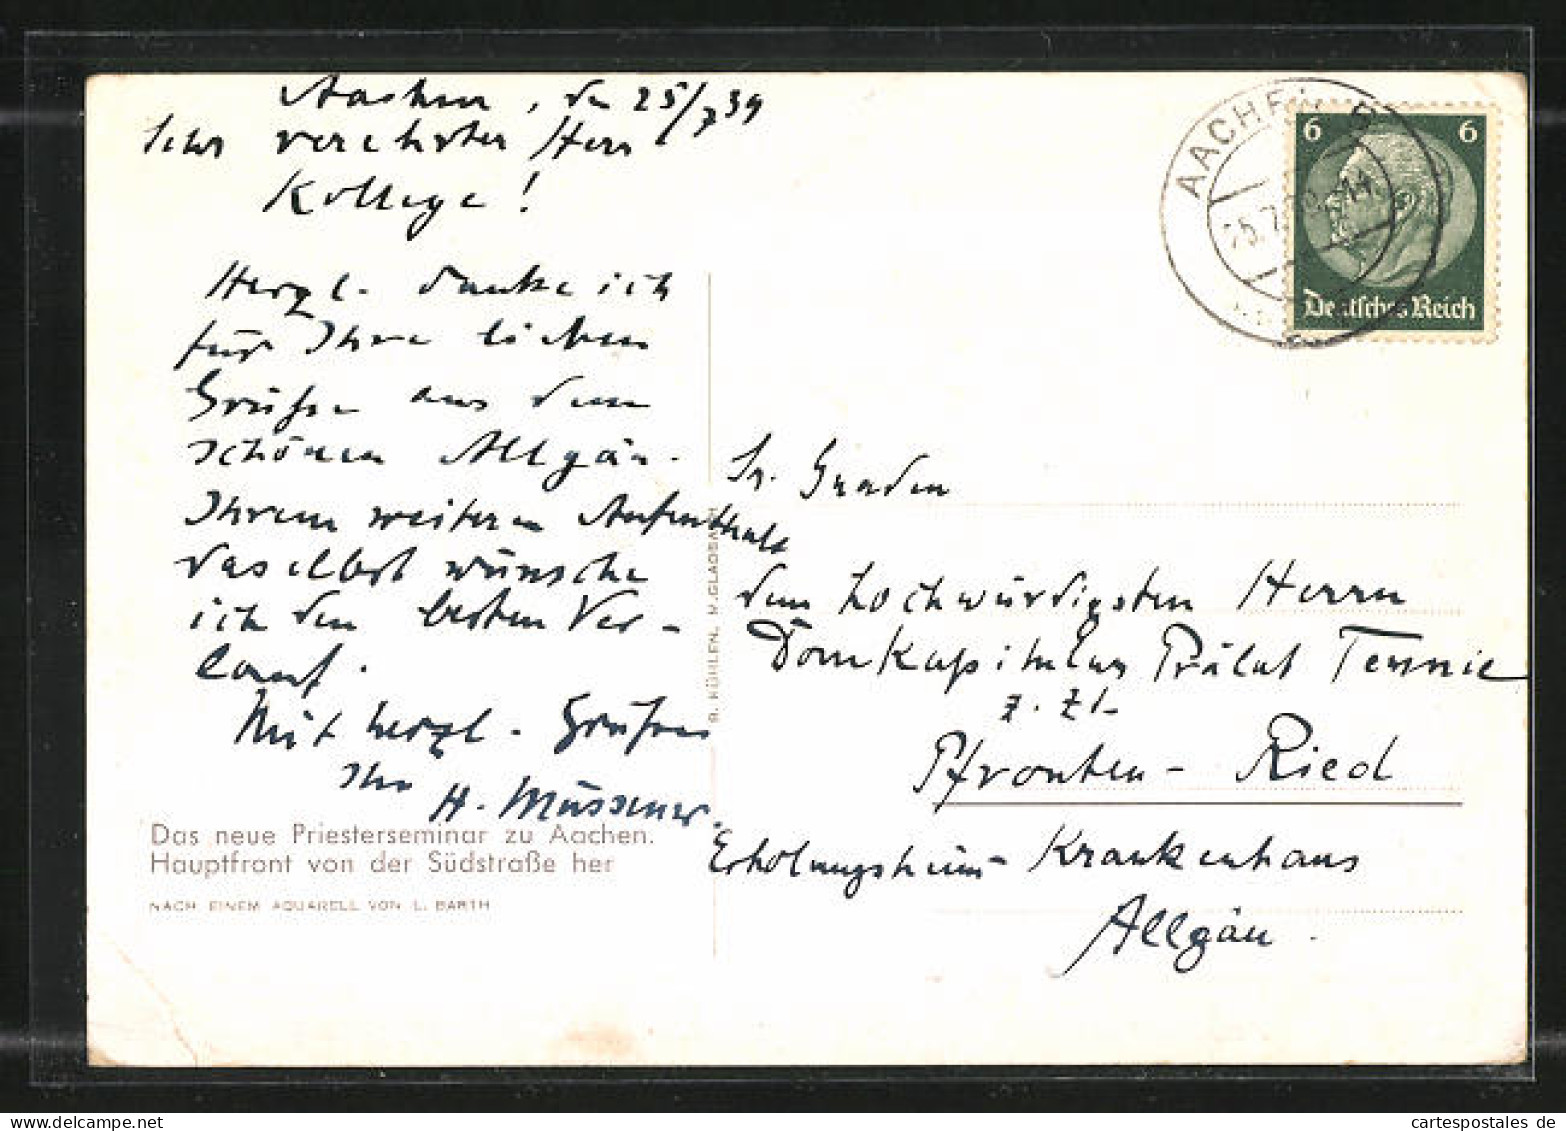 Aachen, den 25/7 39
Sehr verehrter Herr
Kollege!
Herzl. danke ich
für Ihre lieben
Grüße aus dem
schönen Allgäu.
Ihrem weiteren Aufenthalt
daselbst wünsche
ich den besten Ver-
lauf.
Mit herzl. Grüßen
Ihr H. Müssener.
Das neue Priesterseminar zu Aachen.
Hauptfront von der Südstraße her
NACH EINEM AQUARELL VON L. BARTH
B. KÜHLEN, M.GLADBACH
AACHEN
25.7. 14
6 6
Deutsches Reich
Sr. Gnaden
dem hochwürdigsten Herrn
Domkapitular Prälat
z. Zt.
Pfronten-Ried
Erholungsheim-Krankenhaus
Allgäu.
cartespostales de